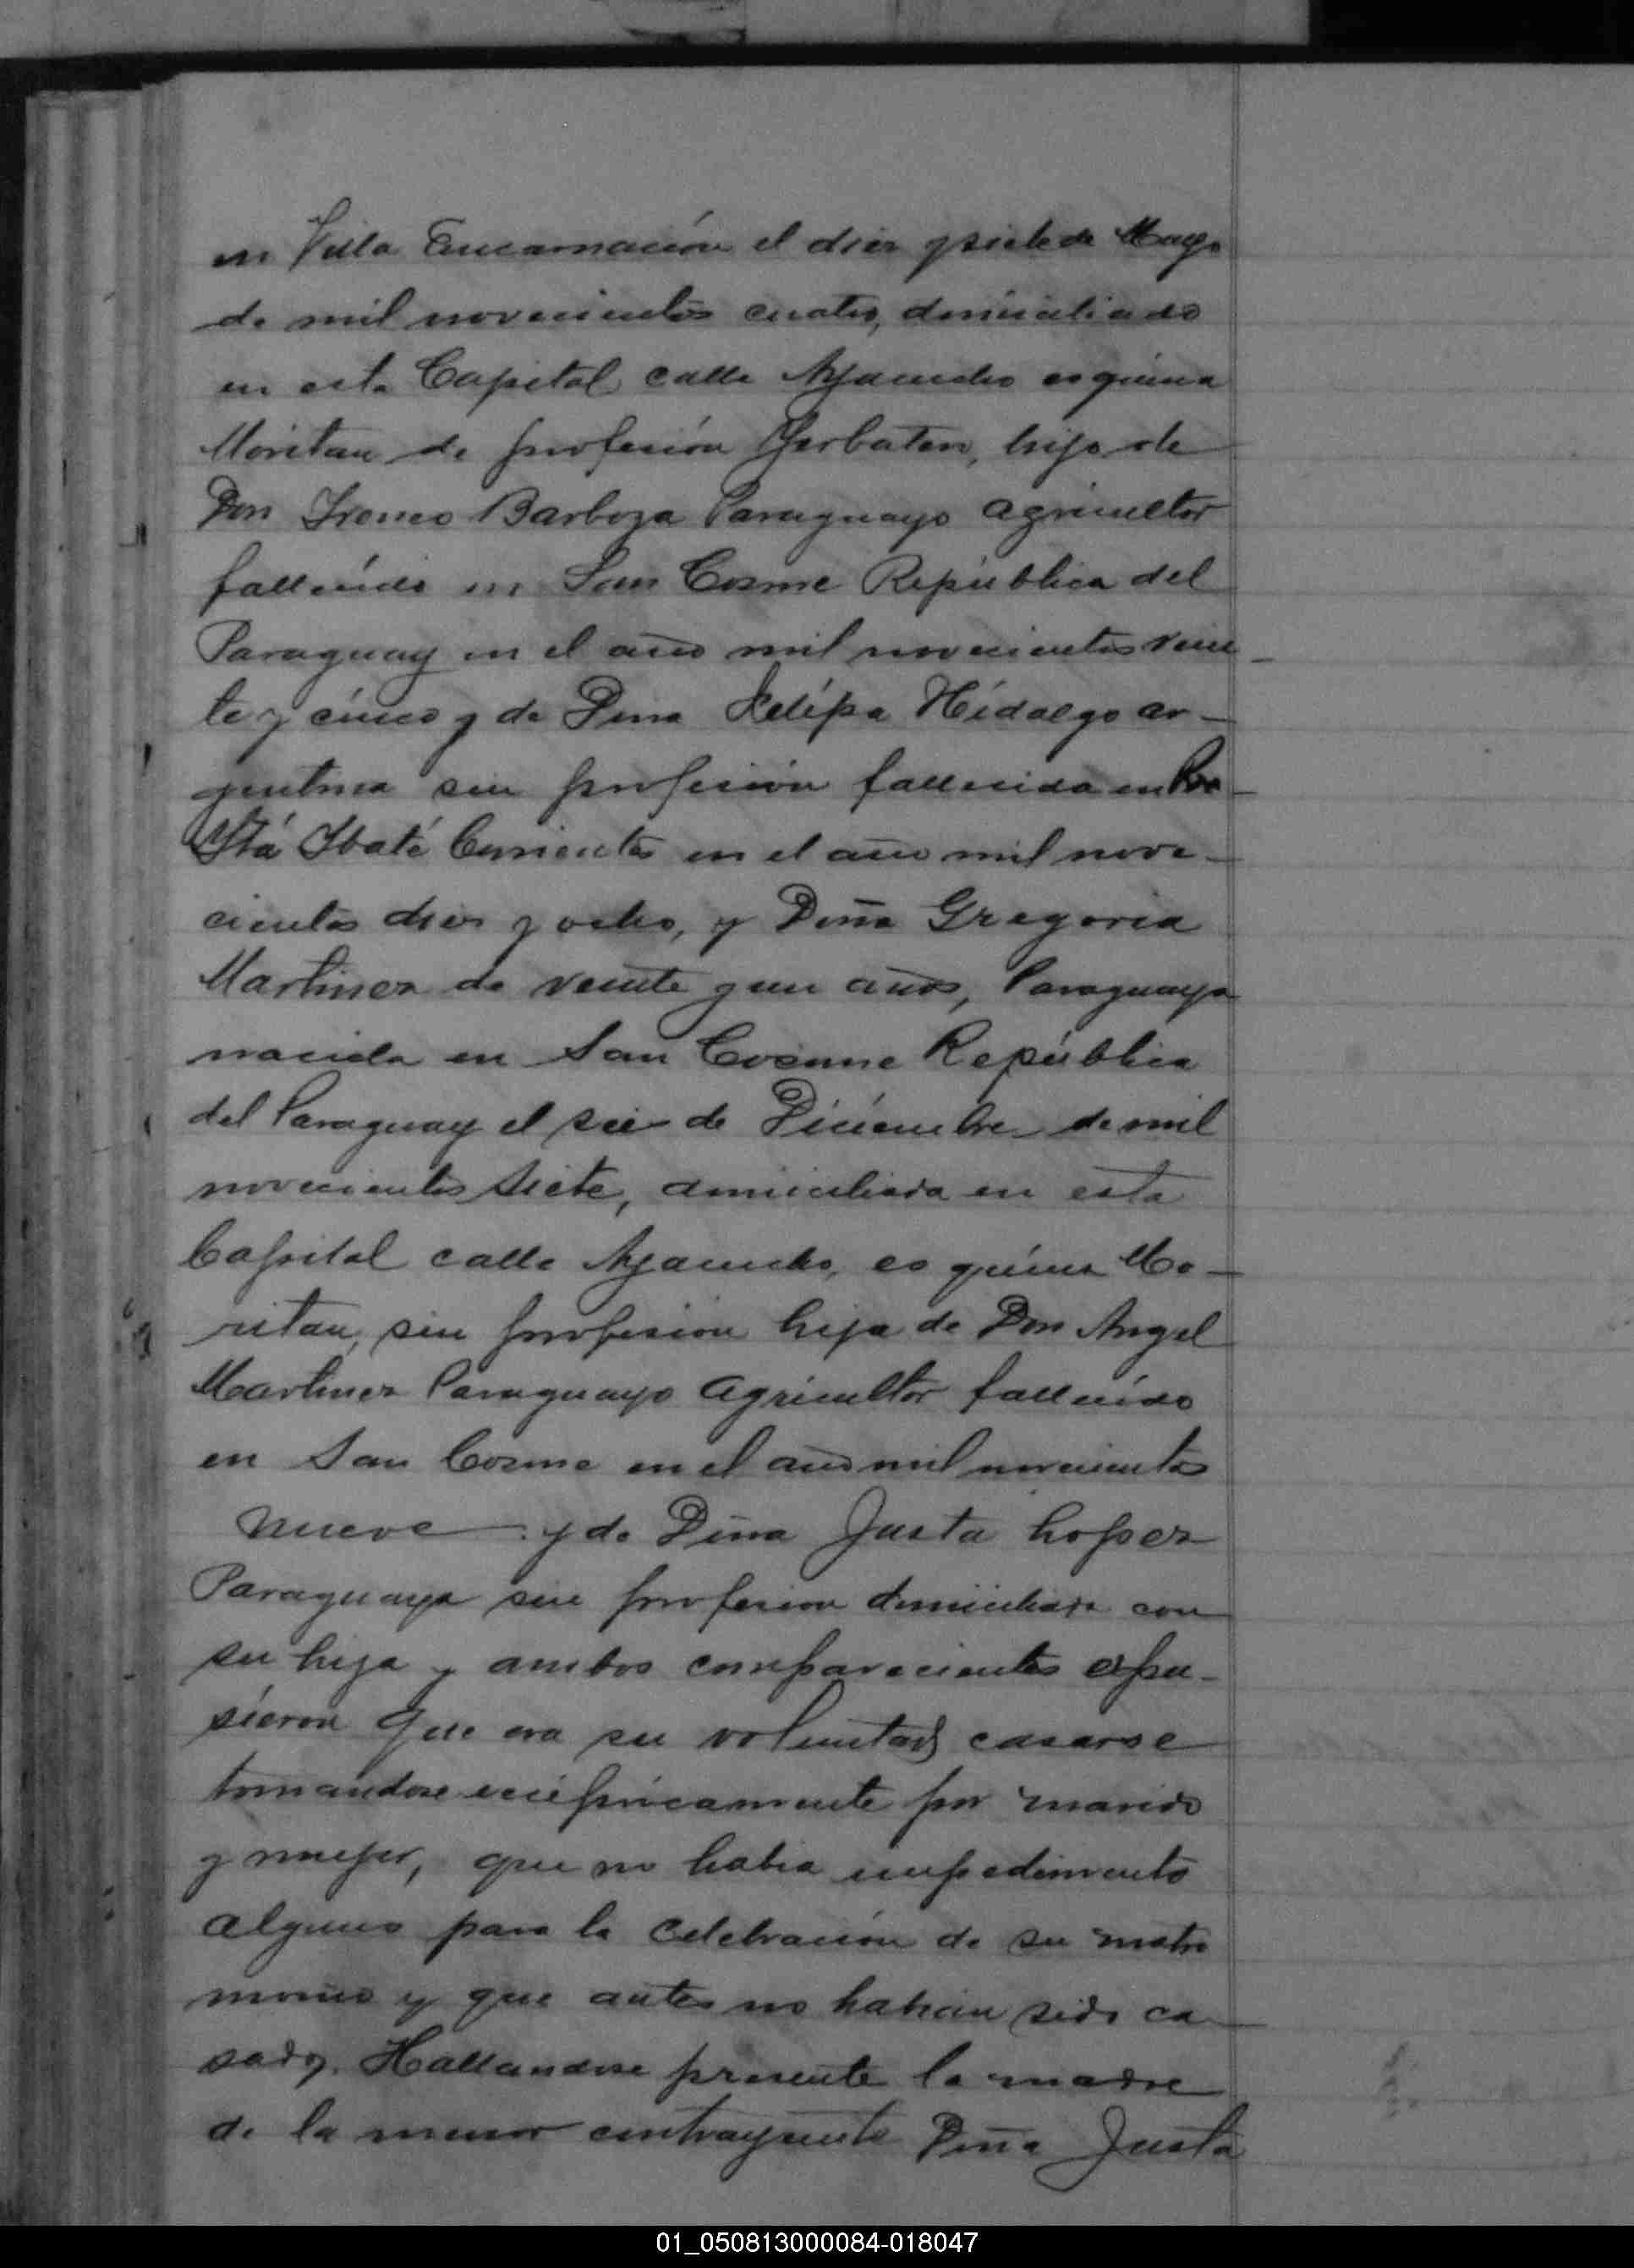 en Villa Encarnación el diez y siete de Mayo
de mil novecientos cuatro, domiciliado
en esta Capital calle Ayacucho esquina
Moritan de profesión Yerbatero, hijo de
Don Ireneo Barboza Paraguayo agricultor
fallecido en San Cosme República del
Paraguay en el año mil novecientos vein
te y cinco y de Dona Felipa Hidalgo ar-
gentina sin profesión fallecida en
Itá Ibaté Corrientes en el año mil nove-
cientos dies y ocho, y Doña Gregoria
Martinez de veinte y un años, Paraguaya
nacida en San Cosme República
del Paraguay el seis de Diciembre de mil
novecientos siete, domiciliada en esta
Capital calle Ayacucho, esquina Mo-
ritan, sin profesion hija de Don Angel
Martinez Paraguayo agricultor fallecido
en San Cosme en el año mil novecientos
nueve y de Dona Justa Lopez
Paraguaya sin profesion domiciliada con
su hija y ambos comparecientes expu-
sieron que era su voluntad casarse
tomandose recíprocamente por marido
y mujer, que no habia impedimento
alguno para la celebración de su matri
monio y que antes no habian sido ca-
sados. Hallandose presente la madre
de la menor contrayente Doña Justa
01_050813000084-018047